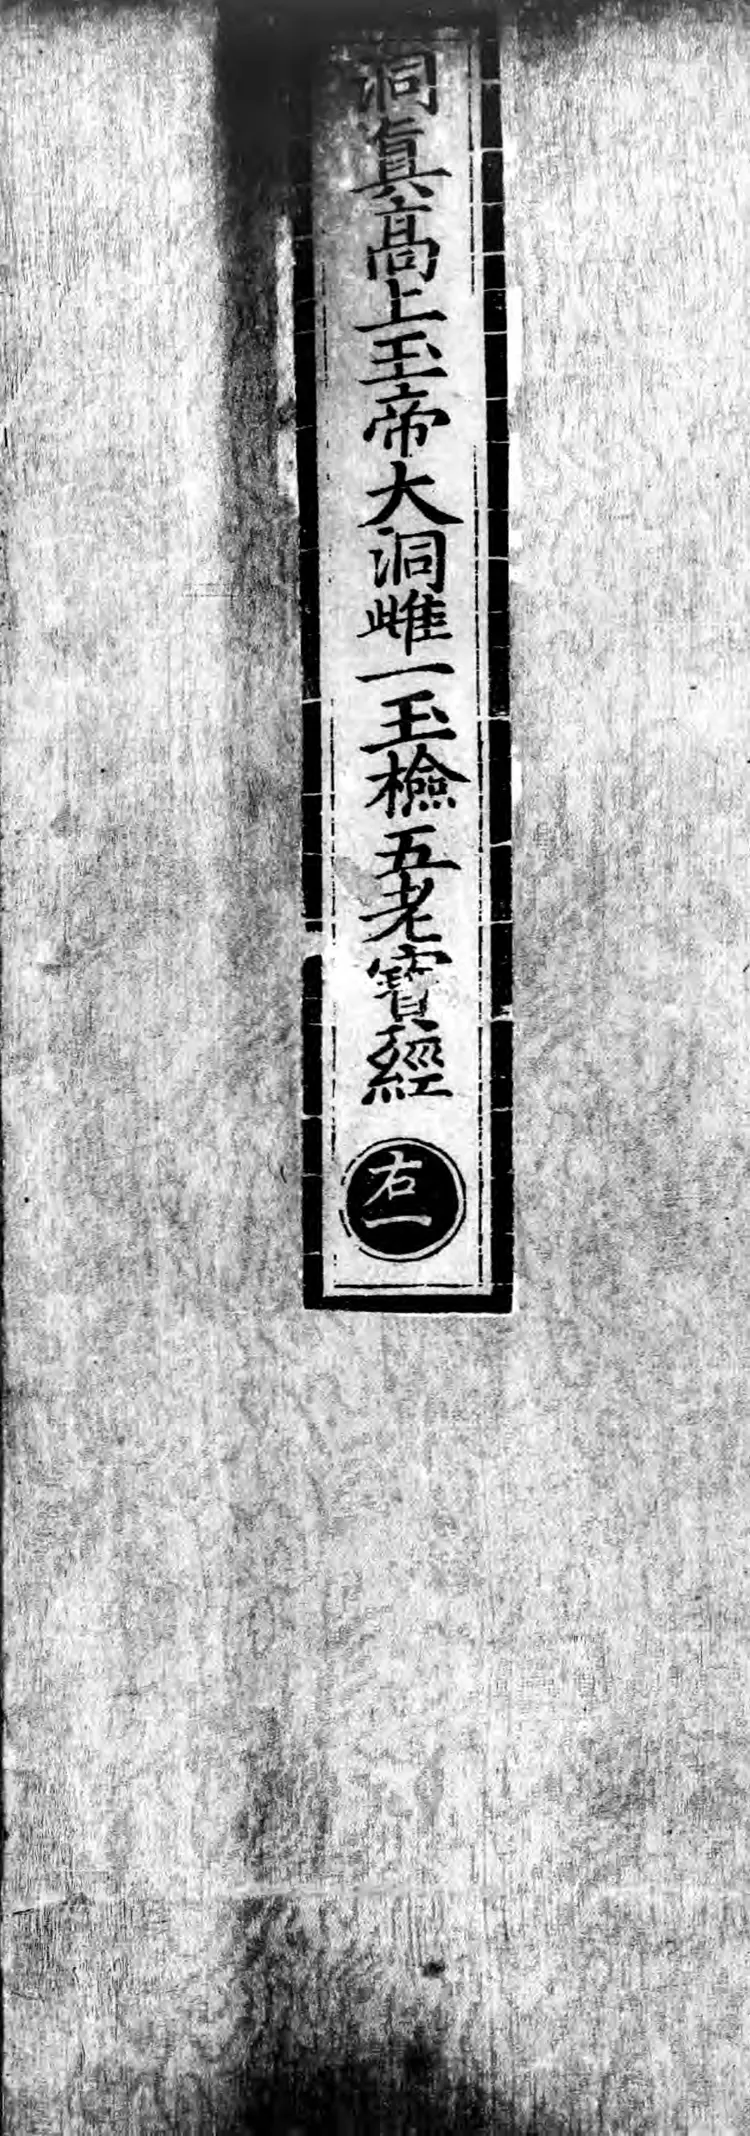 洞真高上玉帝大洞雌一玉檢五老寶經
右一